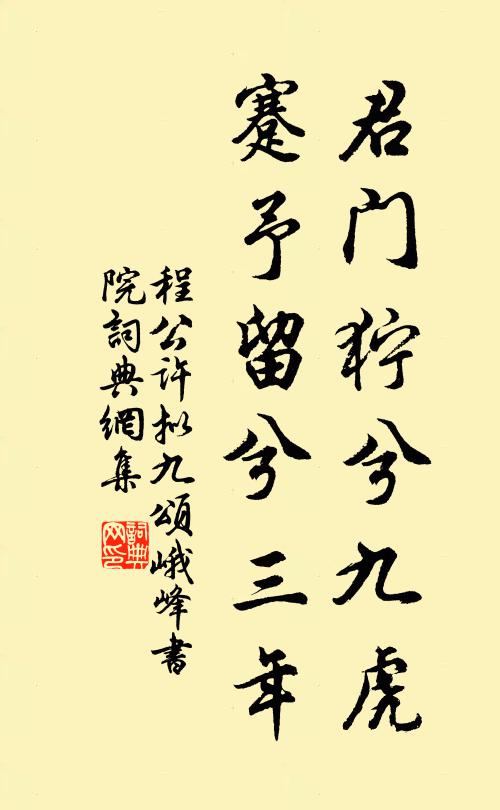 君门狞兮九虎
蹇予留兮三年
程公许拟九颂峨峰書
院詞典網集
詞典网印